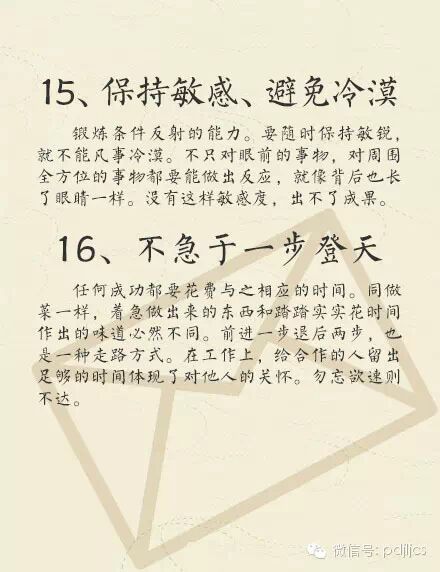 15、保持敏感、避免冷漠
锻炼条件反射的能力。要随时保持敏锐，
就不能凡事冷漠。不只对眼前的事物，对周围
全方位的事物都要能做出反应，就像背后也长
了眼睛一样。没有这样敏感度，出不了成果。
16、不急于一步登天
任何成功都要花费与之相应的时间。同做
菜一样，着急做出来的东西和踏踏实实花时间
作出的味道必然不同。前进一步退后两步，也
是一种走路方式。在工作上，给合作的人留出
足够的时间体现了对他人的关怀。勿忘欲速则
不达。
微信号: pdjljcs